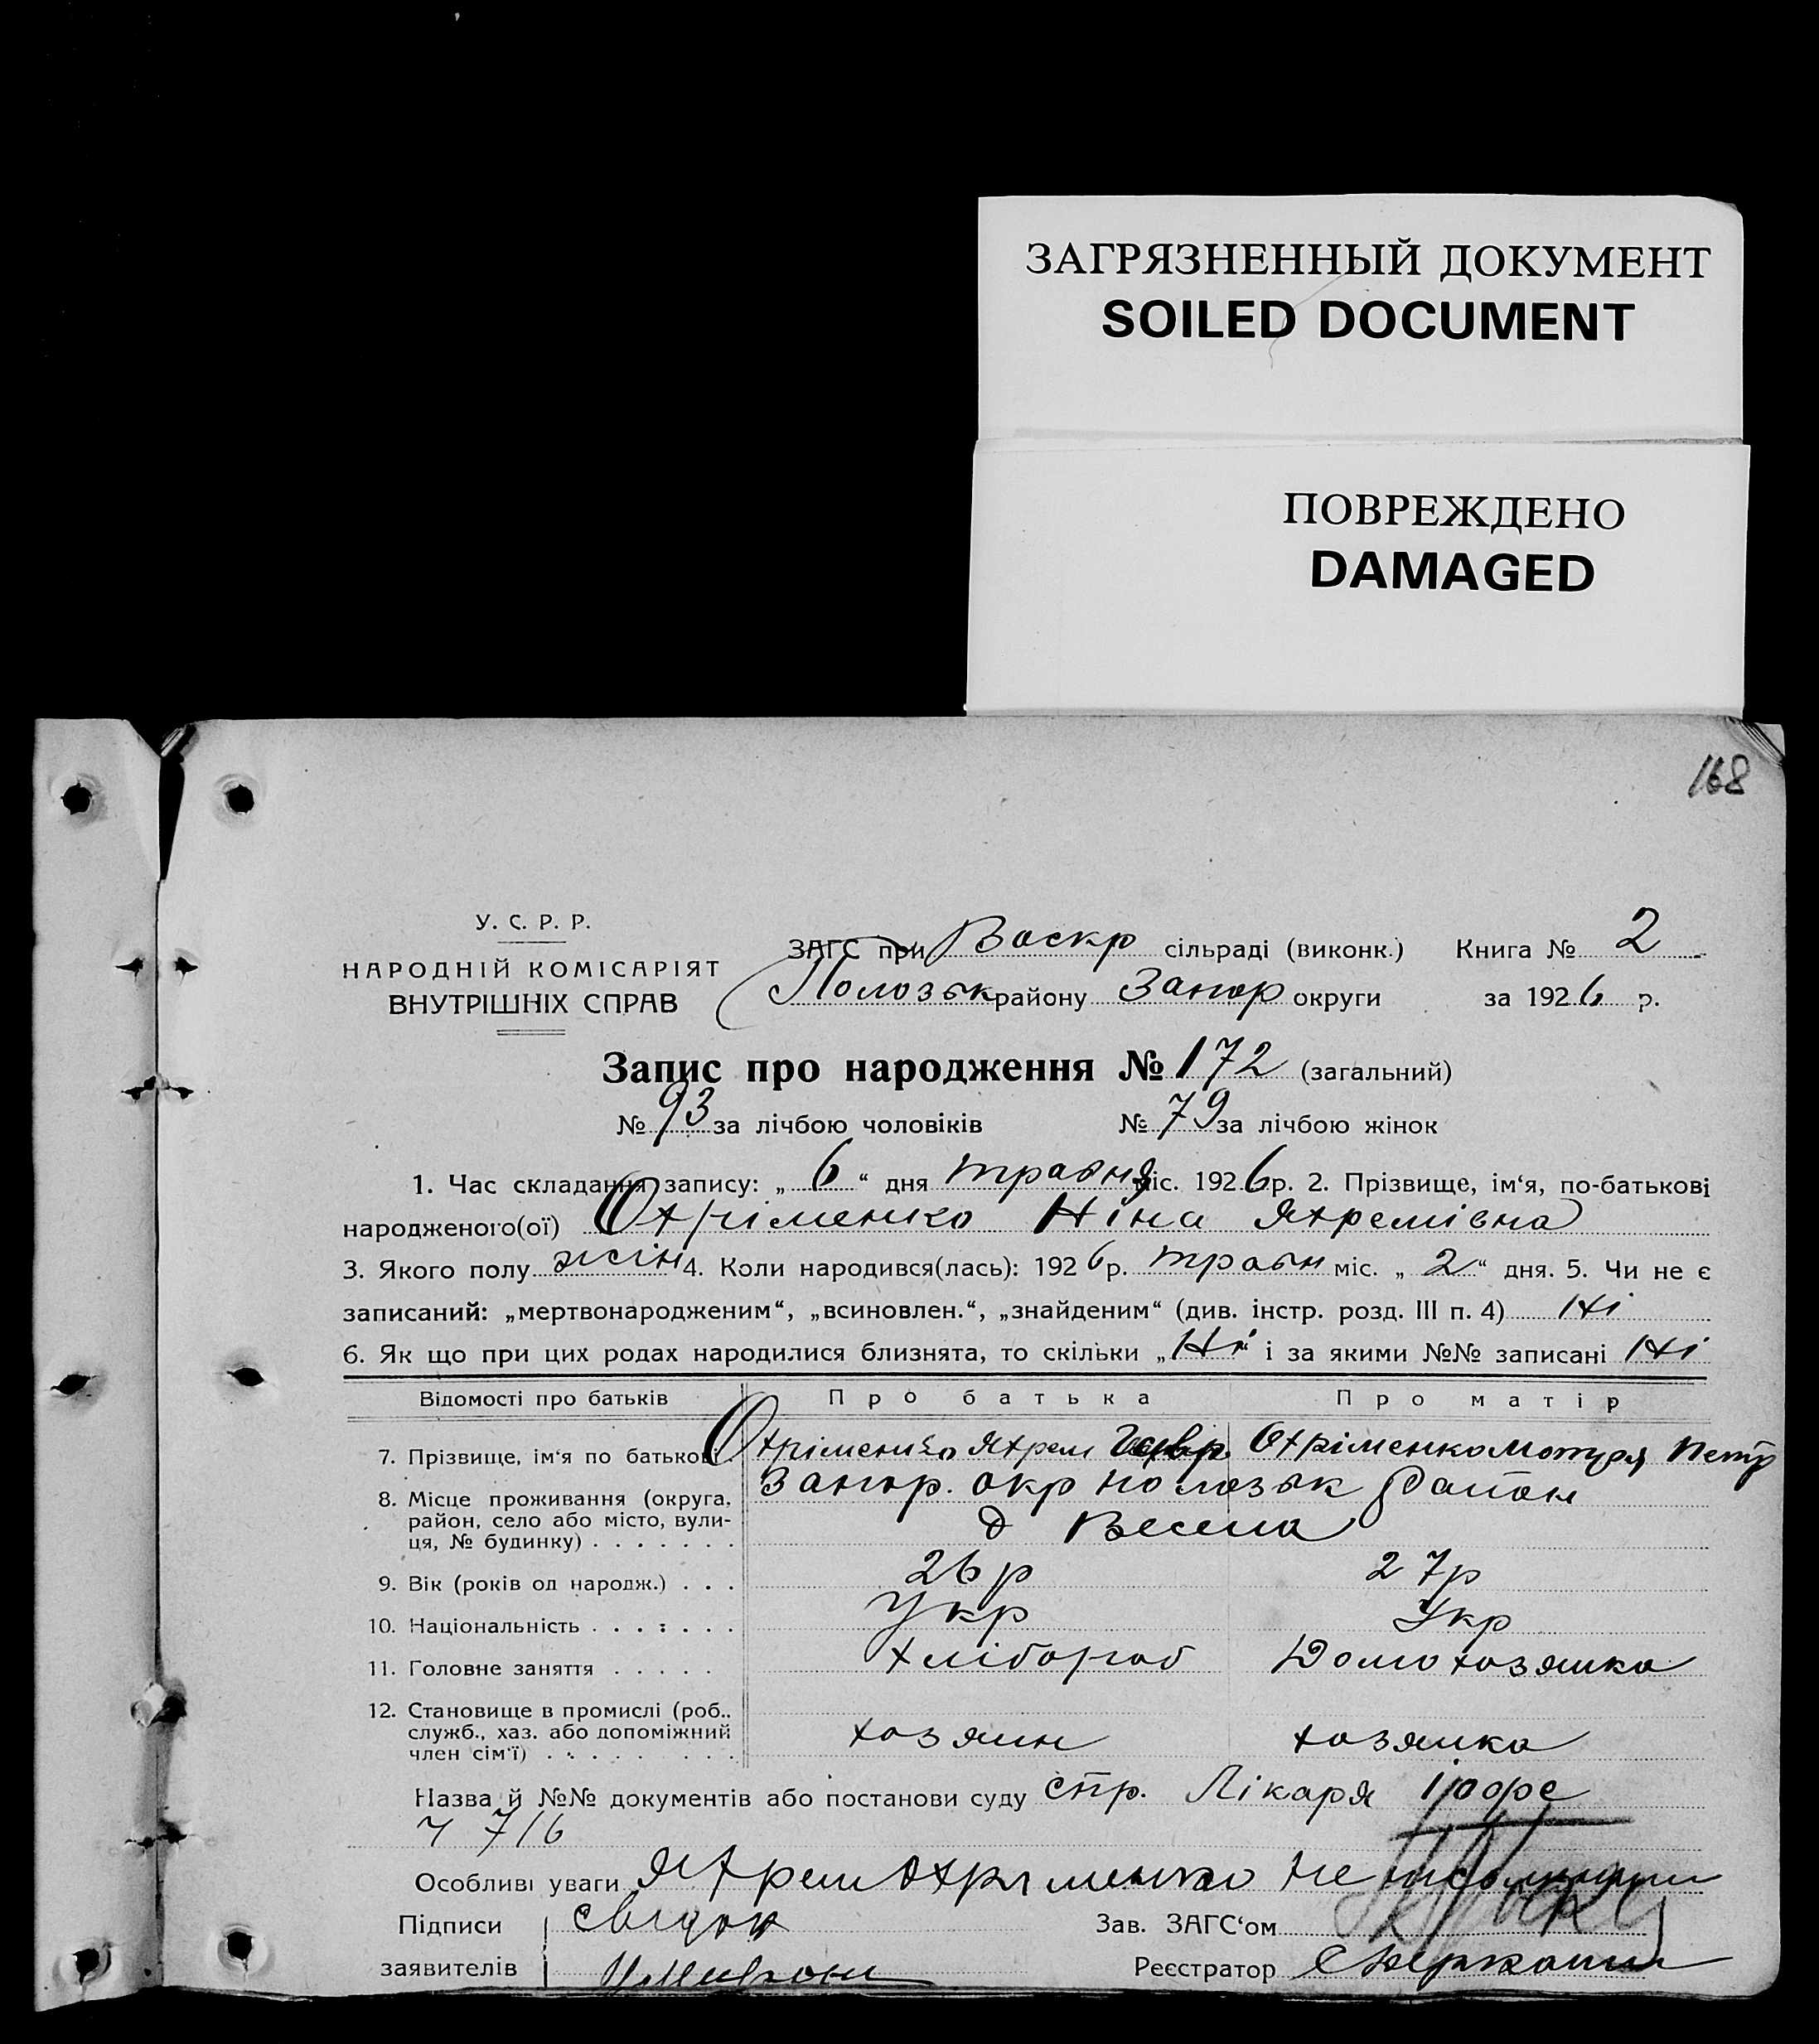 ЗАГРЯЗНЕННЫЙ ДОКУМЕНТ
SOILED DOCUMENT
ПОВРЕЖДЕНО
DAMAGED
168
У. С. Р. Р.
НАРОДНІЙ КОМІСАРІЯТ
ВНУТРІШНІХ СПРАВ
ЗАГС при Воскр сільраді (виконк.) Книга № 2
Полозьк району Запор округи за 1926 р.
Запис про народження № 172 (загальний)
№ 93 за лічбою чоловіків № 79 за лічбою жінок
1. Час складання запису: „ 6 “ дня травня міс. 1926 р. 2. Прізвище, ім‘я, по-батькові
народженого(ої) Охріменко Ніна Яхремівна
3. Якого полу жін 4. Коли народився(лась): 1926 р. травн міс. „ 2 “ дня. 5. Чи не є
записаний: „мертвонародженим“, „всиновлен.“, „знайденим“ (див. інстр. розд. III п. 4) Ні
6. Як що при цих родах народилися близнята, то скільки „ Ні “ і за якими №№ записані Ні
Відомості про батьків Про батька Про матір
7. Прізвище, ім‘я по батькові Охріменко Яхрем Охріменко Мотря Петр
8. Місце проживання (округа, район, село або місто, вулиця, № будинку) Запор. окр Полозьк Район
д Весела
9. Вік (років од народж.) 26 р 27 р
10. Національність Укр Укр
11. Головне заняття хлібороб Домохозяйка
12. Становище в промислі (роб., служб., хаз. або допоміжний член сім‘ї) хозяин хозяйка
Назва й №№ документів або постанови суду стр. Лікаря
ч 716
Особливі уваги Яхрем Охріменко не
Підписи свідок Зав. ЗАГС‘ом
заявителів Реєстратор